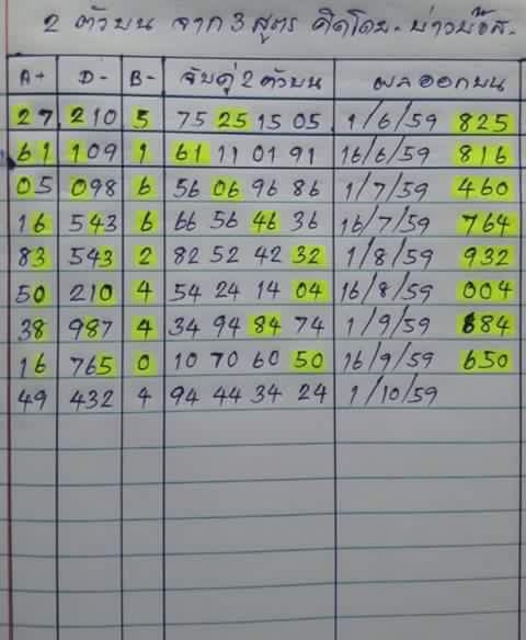 2 ตัวบน จาก 3 สูตร คิดโดย. บ่าวบ๊อส.
A+ D- B- จับคู่ 2 ตัวบน ผลออกบน
27 210 5 75 25 15 05 1/6/59 825
61 109 1 61 11 01 91 16/6/59 816
05 098 6 56 06 96 86 1/7/59 460
16 543 6 66 56 46 36 16/7/59 764
83 543 2 82 52 42 32 1/8/59 932
50 210 4 54 24 14 04 16/8/59 004
38 987 4 34 94 84 74 1/9/59 684
16 765 0 10 70 60 50 16/9/59 650
49 432 4 94 44 34 24 1/10/59